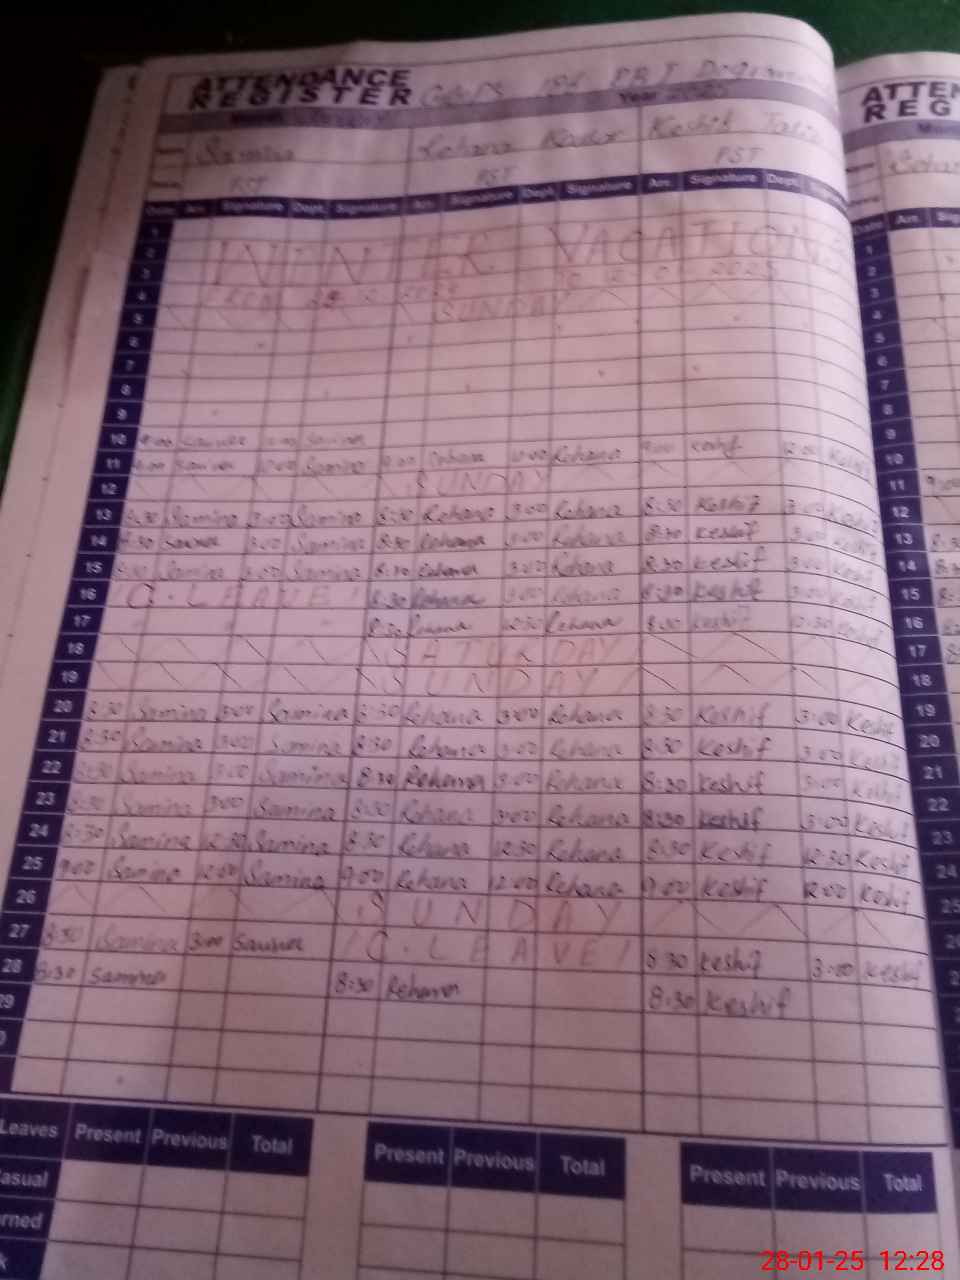 ATTENDANCE
REGISTER
Year
ATTEN
REG
Samina Rehana Kouser Keshif
PST PST PST
Date Arr. Signature Dept. Signature Arr. Signature Dept. Signature Arr. Signature Dept.
1
2 WINTER VACATION
3
4 SUNDAY
5
6
7
8
9
10 9:00 Samina Samina
11 9:00 Samina 12:00 Samina 9:00 Rehana 12:00 Rehana 9:00 Keshif 12:00 Keshif
12 SUNDAY
13 8:30 Samina 3:00 Samina 8:30 Rehana 3:00 Rehana 8:30 Keshif 3:00 Keshif
14 8:30 Samina 3:00 Samina 8:30 Rehana 3:00 Rehana 8:30 Keshif 3:00 Keshif
15 8:30 Samina 3:00 Samina 8:30 Rehana 3:00 Rehana 8:30 Keshif 3:00 Keshif
16 C. LEAVE 8:30 Rehana 3:00 Rehana 8:30 Keshif 3:00 Keshif
17 8:30 Rehana 12:30 Rehana 8:30 Keshif 12:30 Keshif
18 SATURDAY
19 SUNDAY
20 8:30 Samina 3:00 Samina 8:30 Rehana 3:00 Rehana 8:30 Keshif 3:00 Keshif
21 8:30 Samina 3:00 Samina 8:30 Rehana 3:00 Rehana 8:30 Keshif 3:00 Keshif
22 8:30 Samina 3:00 Samina 8:30 Rehana 3:00 Rehana 8:30 Keshif 3:00 Keshif
23 8:30 Samina 3:00 Samina 8:30 Rehana 3:00 Rehana 8:30 Keshif 3:00 Keshif
24 8:30 Samina 12:30 Samina 8:30 Rehana 12:30 Rehana 8:30 Keshif 12:30 Keshif
25 9:00 Samina 12:00 Samina 9:00 Rehana 12:00 Rehana 9:00 Keshif 12:00 Keshif
26 SUNDAY
27 8:30 Samina 3:00 Samina C. LEAVE 8:30 Keshif 3:00 Keshif
28 8:30 Samina 8:30 Rehana 8:30 Keshif
29
Leaves Present Previous Total Present Previous Total Present Previous Total
asual
rned
28-01-25 12:28